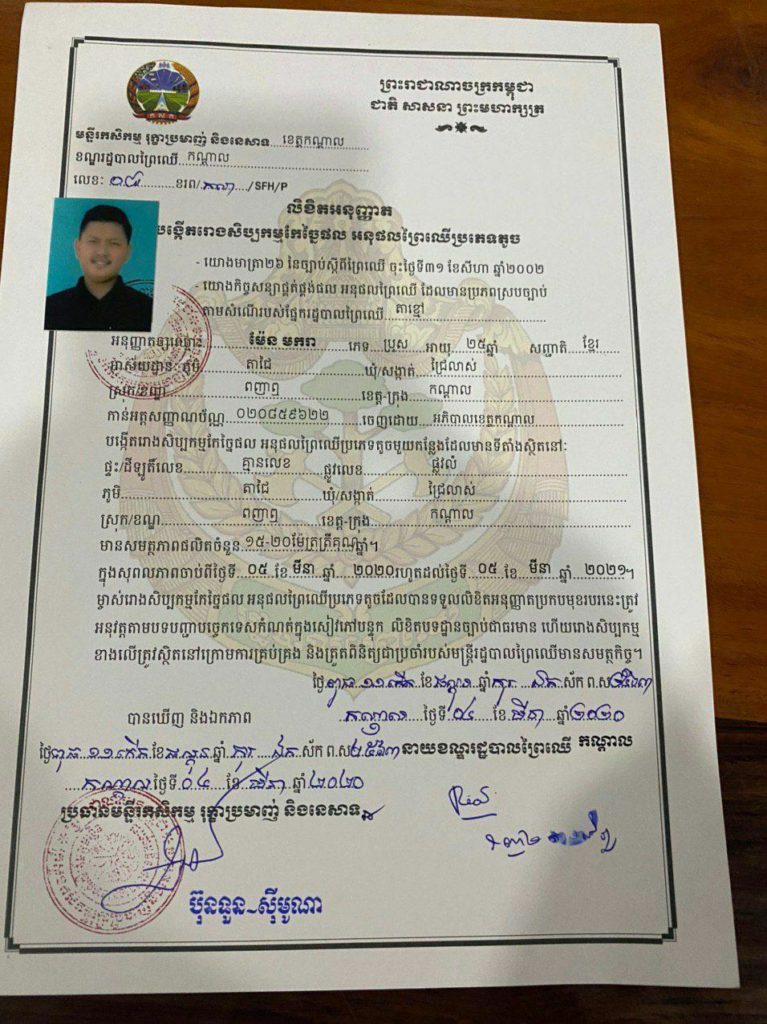 ព្រះរាជាណាចក្រកម្ពុជា
ជាតិ សាសនា ព្រះមហាក្សត្រ
មន្ទីរកសិកម្ម រុក្ខាប្រមាញ់ និងនេសាទ ខេត្តកណ្តាល
ខណ្ឌរដ្ឋបាលព្រៃឈើ កណ្តាល
លេខៈ ខរព/ /SFH/P
លិខិតអនុញ្ញាត
បង្កើតរោងសិប្បកម្មកែច្នៃផល អនុផលព្រៃឈើប្រភេទតូច
- យោងមាត្រា២៦ នៃច្បាប់ស្តីពីព្រៃឈើ ចុះថ្ងៃទី៣១ ខែសីហា ឆ្នាំ២០០២
- យោងកិច្ចសន្យាផ្គត់ផ្គង់ផល អនុផលព្រៃឈើ ដែលមានប្រភពស្របច្បាប់
តាមសំណើរបស់ផ្នែករដ្ឋបាលព្រៃឈើ តាខ្មៅ
អនុញ្ញាតឲ្យឈ្មោះ ម៉ែន មករា ភេទ ប្រុស អាយុ ២៥ឆ្នាំ សញ្ជាតិ ខ្មែរ
អាស័យដ្ឋានៈ ភូមិ តាដៃ ឃុំ/សង្កាត់ ជ្រៃលាស់
ស្រុក/ខណ្ឌ ពញាឮ ខេត្ត-ក្រុង កណ្តាល
កាន់អត្តសញ្ញាណប័ណ្ណ ០២០៨៥៩៦២២ ចេញដោយ អភិបាលខេត្តកណ្តាល
បង្កើតរោងសិប្បកម្មកែច្នៃផល អនុផលព្រៃឈើប្រភេទតូចមួយកន្លែងដែលមានទីតាំងស្ថិតនៅៈ
ផ្ទះ/ដីឡូតិ៍លេខ គ្មានលេខ ផ្លូវលេខ ផ្លូវលំ
ភូមិ តាដៃ ឃុំ/សង្កាត់ ជ្រៃលាស់
ស្រុក/ខណ្ឌ ពញាឮ ខេត្ត-ក្រុង កណ្តាល
មានសមត្ថភាពផលិតចំនួន ១៥-20ម៉ែត្រត្រីគុណឆ្នាំ។
ក្នុងសុពលភាពចាប់ពីថ្ងៃទី ០៥ ខែ មីនា ឆ្នាំ 2020រហូតដល់ថ្ងៃទី ០៥ ខែ មីនា ឆ្នាំ 2021។
ម្ចាស់រោងសិប្បកម្មកែច្នៃផល អនុផលព្រៃឈើប្រភេទតូចដែលបានទទួលលិខិតអនុញ្ញាតប្រកបមុខរបរនេះត្រូវ
អនុវត្តតាមបទបញ្ជាបច្ចេកទេសកំណត់ក្នុងសៀវភៅបន្ទុក លិខិតបទដ្ឋានច្បាប់ជាធរមាន ហើយរោងសិប្បកម្ម
ខាងលើត្រូវស្ថិតនៅក្រោមការគ្រប់គ្រង និងត្រួតពិនិត្យជាប្រចាំរបស់មន្ត្រីរដ្ឋបាលព្រៃឈើមានសមត្ថកិច្ច។
ថ្ងៃពុធ ១១កើត ខែផល្គុន ឆ្នាំកុរ ឯកស័ក ព.ស២៥៦៣
កណ្តាល ថ្ងៃទី០៤ ខែមីនា ឆ្នាំ២០២០
បានឃើញ និងឯកភាព
ថ្ងៃពុធ ១១កើត ខែផល្គុន ឆ្នាំកុរ ឯកស័ក ព.ស២៥៦៣
នាយខណ្ឌរដ្ឋបាលព្រៃឈើ កណ្តាល
កណ្តាល ថ្ងៃទី០៤ ខែមីនា ឆ្នាំ២០២០
ប្រធានមន្ទីរកសិកម្ម រុក្ខាប្រមាញ់ និងនេសាទ
ប៊ុនទួន~ស៊ីមូណា